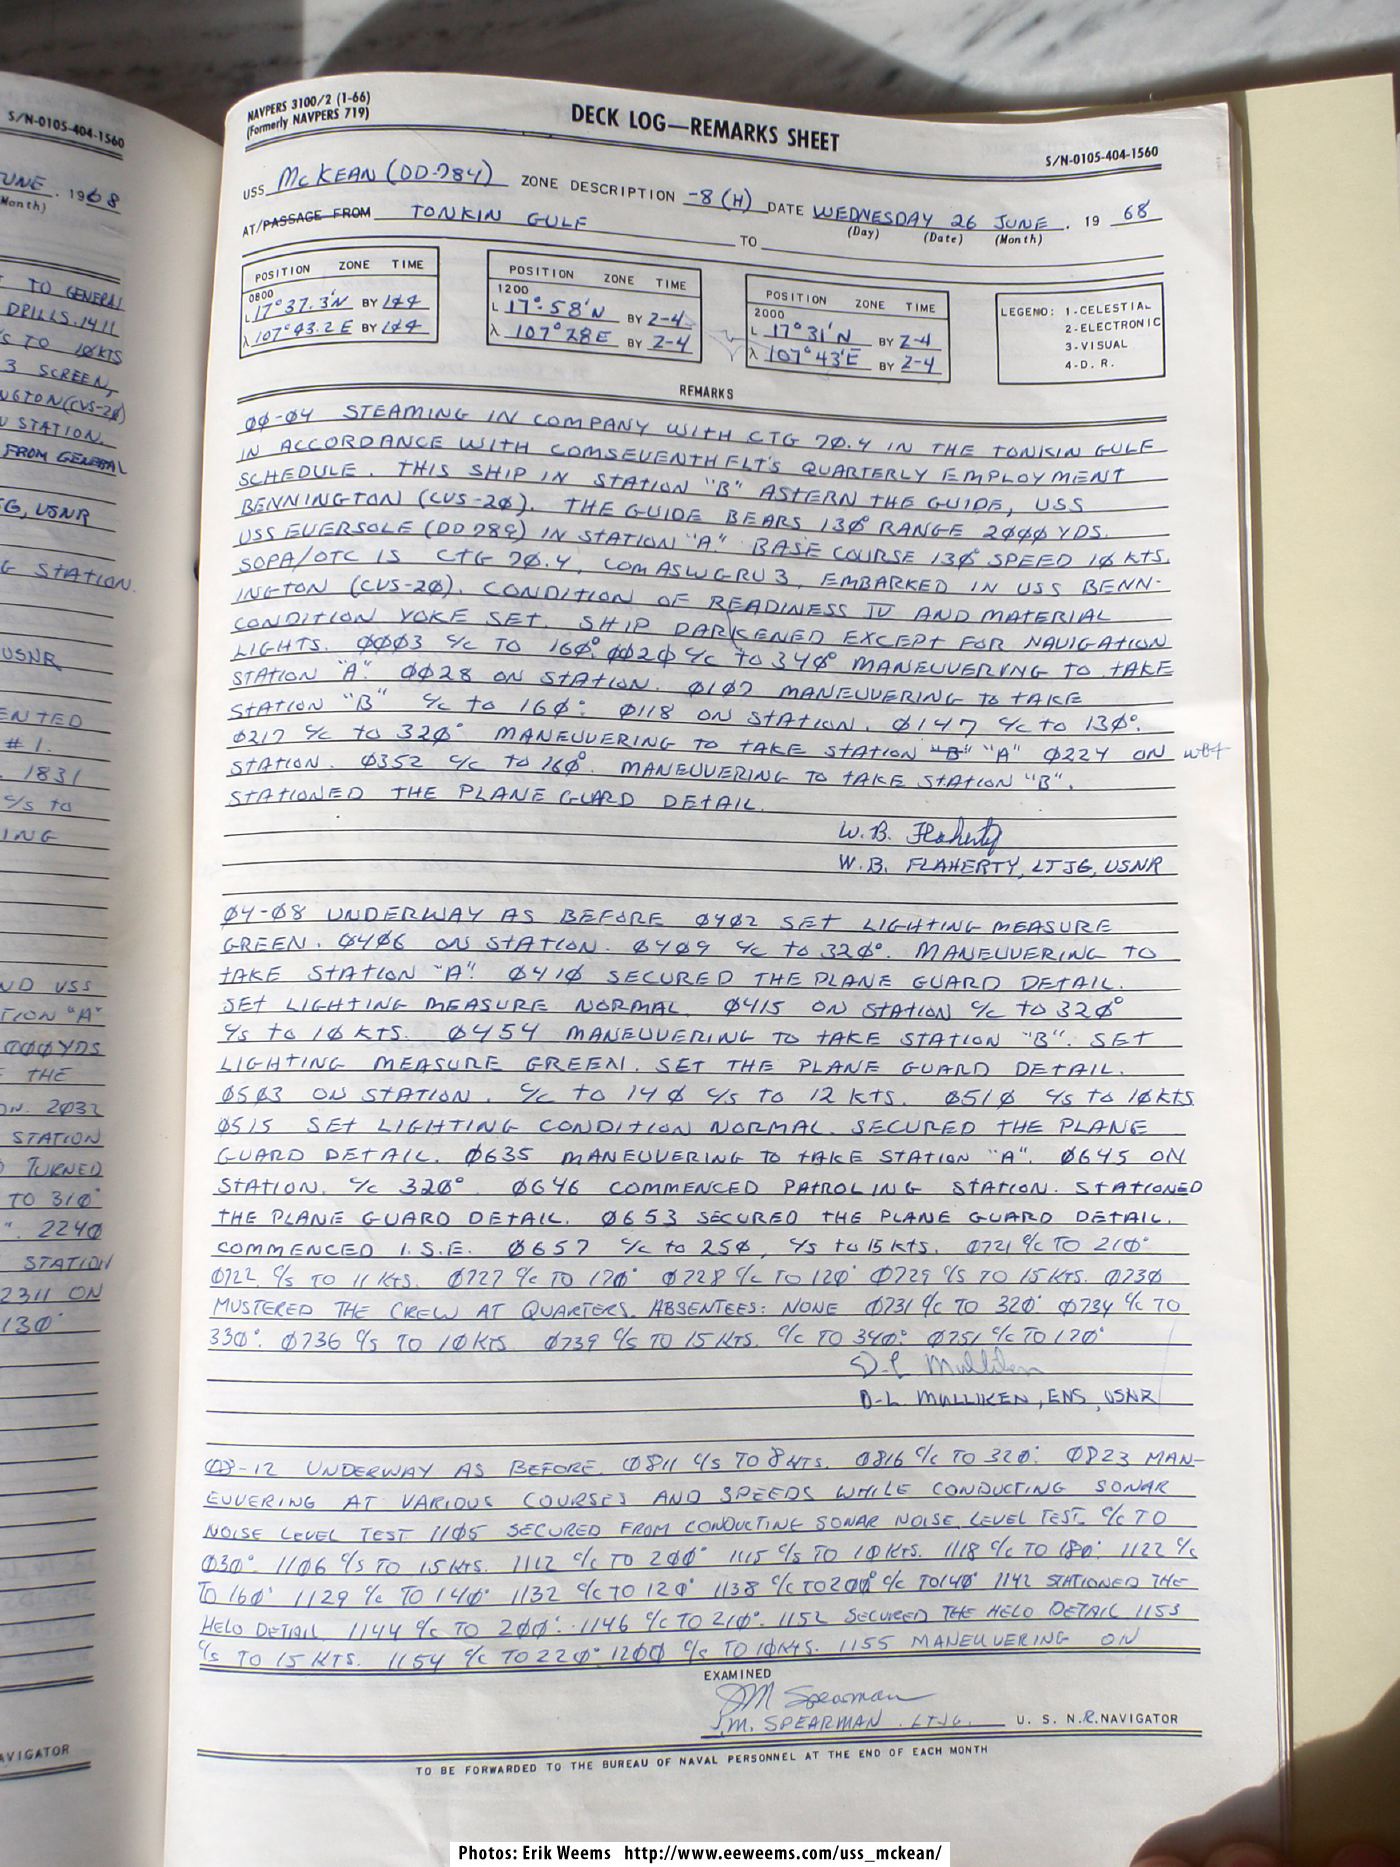 S/N-0105-404-1560
JUNE . 1968
(Month)
T TO GENERAL
DRILLS. 1411
C/S TO 10KTS
3 SCREEN,
NGTON(CVS-20)
STATION.
FROM GENERAL
JG, USNR
G STATION.
USNR
ENTED
#1.
. 1831
C/S to
ING
ND USS
TION "A"
000YDS
THE
ON. 2032
STATION
TURNED
TO 310°
". 2240
STATION
2311 ON
130°
AVIGATOR
NAVPERS 3100/2 (1-66)
(Formerly NAVPERS 719)
DECK LOG—REMARKS SHEET
S/N-0105-404-1560
USS McKEAN (DD-784) ZONE DESCRIPTION -8 (H) DATE WEDNESDAY 26 JUNE . 19 68
(Day) (Date) (Month)
AT/PASSAGE FROM TONKIN GULF TO
POSITION ZONE TIME
0800
L 17° 37.3'N BY 1&4
λ 107° 43.2 E BY 1&4
POSITION ZONE TIME
1200
L 17°-58'N BY 2-4
λ 107° 28E BY 2-4
POSITION ZONE TIME
2000
L 17° 31'N BY 2-4
λ 107° 43'E BY 2-4
LEGEND: 1-CELESTIAL
2-ELECTRONIC
3-VISUAL
4-D. R.
REMARKS
00-04 STEAMING IN COMPANY WITH CTG 70.4 IN THE TONKIN GULF
IN ACCORDANCE WITH COMSEVENTHFLT'S QUARTERLY EMPLOYMENT
SCHEDULE. THIS SHIP IN STATION "B" ASTERN THE GUIDE, USS
BENNINGTON (CVS-20). THE GUIDE BEARS 130° RANGE 2000 YDS.
USS EVERSOLE (DD789) IN STATION "A". BASE COURSE 130° SPEED 10 KTS.
SOPA/OTC IS CTG 70.4, COMASWGRU 3, EMBARKED IN USS BENN-
INGTON (CVS-20). CONDITION OF READINESS IV AND MATERIAL
CONDITION YOKE SET. SHIP DARKENED EXCEPT FOR NAVIGATION
LIGHTS. 0003 C/C TO 160°. 0020 C/C to 340° MANEUVERING TO TAKE
STATION "A". 0028 ON STATION. 0107 MANEUVERING to TAKE
STATION "B" C/C to 160°. 0118 ON STATION. 0147 C/C to 130°.
0217 C/C to 320° MANEUVERING TO TAKE STATION "B" "A" 0224 ON WBF
STATION. 0352 C/C to 160°. MANEUVERING TO TAKE STATION "B".
STATIONED THE PLANE GUARD DETAIL.
W. B. Flaherty
W. B. FLAHERTY, LTJG, USNR
04-08 UNDERWAY AS BEFORE 0402 SET LIGHTING MEASURE
GREEN. 0406 ON STATION. 0409 C/C to 320°. MANEUVERING TO
TAKE STATION "A". 0410 SECURED THE PLANE GUARD DETAIL.
SET LIGHTING MEASURE NORMAL. 0415 ON STATION C/C to 320°
C/S to 10 KTS. 0454 MANEUVERING to TAKE STATION "B". SET
LIGHTING MEASURE GREEN. SET THE PLANE GUARD DETAIL.
0503 ON STATION. C/C to 140 C/S to 12 KTS. 0510 C/S to 10KTS
0515 SET LIGHTING CONDITION NORMAL. SECURED THE PLANE
GUARD DETAIL. 0635 MANEUVERING to TAKE STATION "A". 0645 ON
STATION. C/C 320°. 0646 COMMENCED PATROLING STATION. STATIONED
THE PLANE GUARD DETAIL. 0653 SECURED THE PLANE GUARD DETAIL.
COMMENCED I.S.E. 0657 C/C to 250, C/S to 15 KTS. 0721 C/C TO 210°
0722 C/S TO 11 KTS. 0727 C/C TO 170° 0728 C/C TO 120° 0729 C/S TO 15 KTS. 0730
MUSTERED THE CREW AT QUARTERS. ABSENTEES: NONE 0731 C/C TO 320° 0734 C/C TO
330°. 0736 C/S TO 10 KTS 0739 C/S TO 15 KTS. C/C TO 340° 0751 C/C TO 170°
D. L. Mulliken
D. L. MULLIKEN, ENS, USNR
08-12 UNDERWAY AS BEFORE. 0811 C/S TO 8 KTS. 0816 C/C TO 320° 0823 MAN-
EUVERING AT VARIOUS COURSES AND SPEEDS WHILE CONDUCTING SONAR
NOISE LEVEL TEST 1105 SECURED FROM CONDUCTING SONAR NOISE LEVEL TEST. C/C TO
030° 1106 C/S TO 15 KTS. 1112 C/C TO 200° 1115 C/S TO 10 KTS. 1118 C/C TO 180° 1122 C/C
TO 160° 1129 C/C TO 140° 1132 C/C TO 120° 1138 C/C TO 200° C/C TO 140° 1142 STATIONED THE
HELO DETAIL 1144 C/C TO 200°. 1146 C/C TO 210°. 1152 SECURED THE HELO DETAIL 1153
C/S TO 15 KTS. 1154 C/C TO 220° 1200 C/C TO 10 KTS. 1155 MANEUVERING ON
EXAMINED
JM Spearman
J.M. SPEARMAN. LTJG. U. S. N.R. NAVIGATOR
TO BE FORWARDED TO THE BUREAU OF NAVAL PERSONNEL AT THE END OF EACH MONTH
Photos: Erik Weems http://www.eeweems.com/uss_mckean/